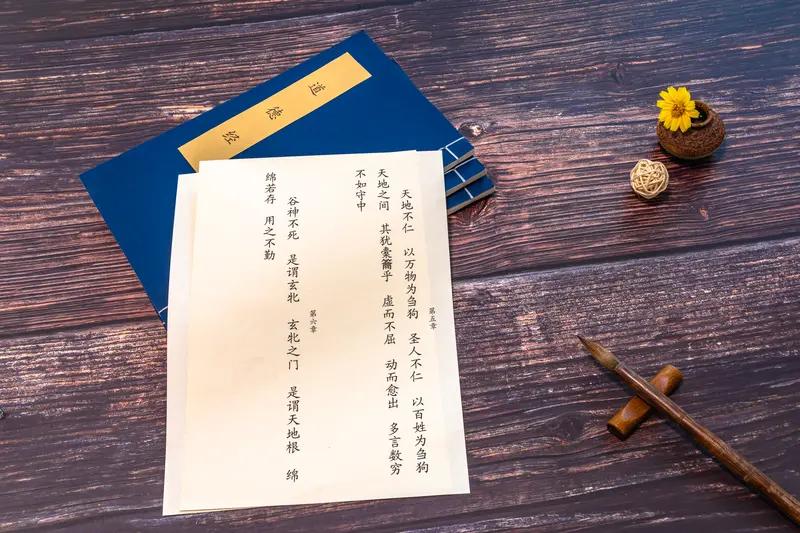 道德经
第五章
天地不仁 以万物为刍狗 圣人不仁 以百姓为刍狗
天地之间 其犹橐籥乎 虚而不屈 动而愈出 多言数穷
不如守中
第六章
谷神不死 是谓玄牝 玄牝之门 是谓天地根 绵
绵若存 用之不勤